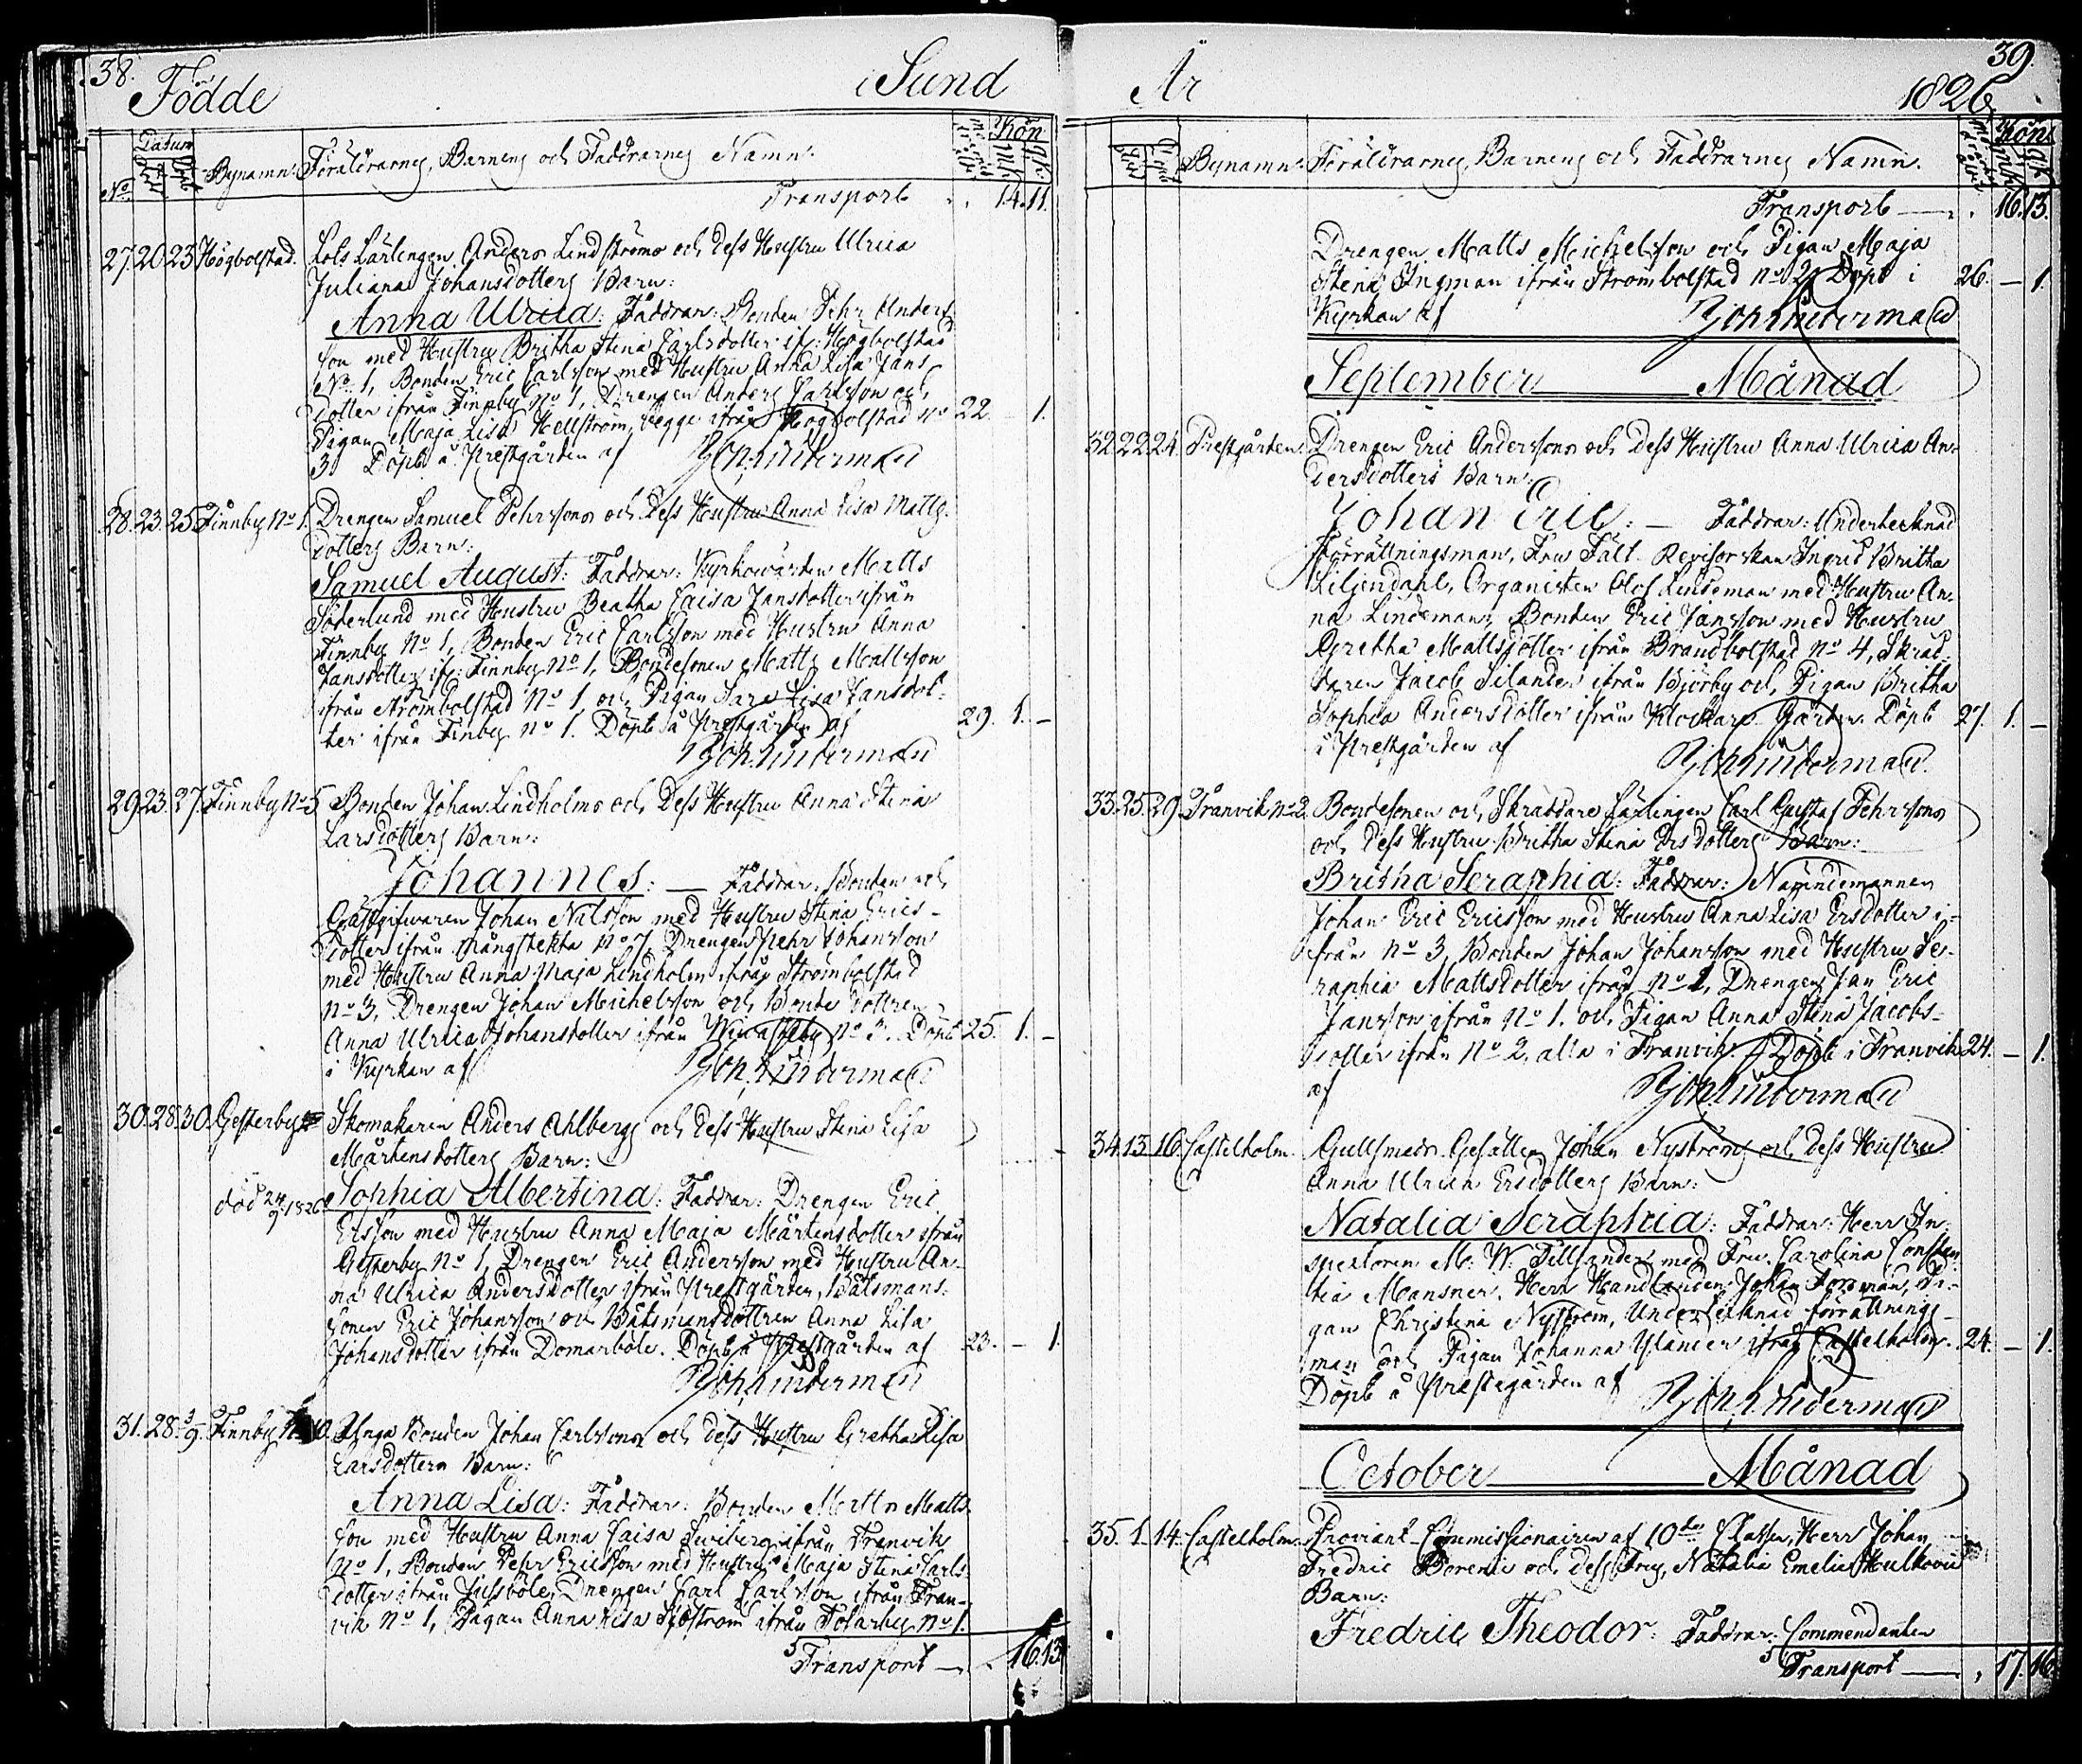 38.
Födde i Sund
Datum
Kön
No. Bynamn: Föräldrarnes, Barnens och Faddrarnes Namn:
Transport 14. 11.
27. 20. 23 Högbolstad. Lots Lärlingen Anders Lindströms och dess Hustru Ulrica
Juliana Johansdotters Barn:
Anna Ulrica: Faddrar: Bonden Pehr Anders-
son med Hustru Britha Stina Carlsdotter ifr: Högbolstad
No 1, Bonden Eric Carlsson med Hustru Anna Lisa Jans
dotter ifrån Finnby No 1, Drengen Anders Carlsson och
Pigan Maja Lisa Hellström, begge ifrån Högbolstad No 22. - 1.
3. Döpt å Prestgården af Joh. Linderman
28. 23. 25 Finnby No 1. Drengen Samuel Pehrssons och Dess Hustru Anna Lisa Matts
dotters Barn:
Samuel August: Faddrar: Kyrkowärden Matts
Söderlund med Hustru Beatha Caisa Jansdotter ifrån
Finnby No 1, Bonden Eric Carlsson med Hustru Anna
Jansdotter ifr: Finnby No 1, Bondesonen Matts Mattsson
ifrån Strömbolstad No 1, och Pigan Sara Lisa Jansdot-
ter ifrån Finby No 1. Döpt å Prestgården af 29. 1. -
Joh. Linderman
29. 23. 27. Finnby No 5 Bonden Johan Lindholms och Dess Hustru Anna Stina
Larsdotters Barn:
Johannes: — Faddrar: Bonden och
Gästgifwaren Johan Nilsson med Hustru Stina Erics-
dotter ifrån Mångstekta No 7, Drengen Pehr Johansson
med Hustru Anna Maja Lindholm ifrån Strömbolstad
No 3, Drengen Johan Michelsson och Bonde dottren
Anna Ulrica Johansdotter ifrån No 3. Döpt 25. 1. -
i Kyrkan af Joh. Linderman
30. 28. 30. Gesterby Skomakaren Anders Ahlbergs och dess Hustru Stina Lisa
Mårtensdotters Barn:
död 24/9 1826 Sophia Albertina: Faddrar: Drengen Eric
Ersson med Hustru Anna Maja Mårtensdotter ifrån
Gesterby No 1, Drengen Eric Andersson med Hustru An-
na Ulrica Andersdotter ifrån Prestgården, Båtsmans-
sonen Eric Johansson och Båtsmansdottren Anna Lisa
Johansdotter ifrån Domarböle. Döpt å Prestgården af 23. - 1.
Joh. Linderman
31. 28. 3/9. Finnby No 10. Unga Bonden Johan Carlssons och dess Hustru Gretha Lisa
Larsdotters Barn:
Anna Lisa: Faddrar: Bonden Matts Matts-
son med Hustru Anna Caisa Swiberg ifrån Tranvik
No 1, Bonden Pehr Ericsson med Hustru Maja Stina Carls-
dotter ifrån Jussböle, Drengen Carl Carlsson ifrån Tran-
vik No 1, Pigan Anna Lisa Sjöström ifrån Tosarby No 1.
Transport — 16. 13.
39.
År 1826
Kön
Bynamn: Föräldrarnes, Barnens och Faddrarnes Namn.
Transport — 16. 13.
Drengen Matts Michelsson och Pigan Maja
Stina Ingman ifrån Strömbolstad No 2. Döpt i 26. - 1.
Kyrkan af Joh. Linderman
September Månad
32. 22. 24. Prestgården. Drengen Eric Anderssons och Dess Hustru Anna Ulrica An-
dersdotters Barn:
Johan Eric: — Faddrar: Undertecknad
Förrättningsman, Fru Fält-Revisorskan Ingrid Britha
Liljendahl, Organisten Olof Lindeman med Hustru An-
na Lindeman, Bonden Eric Jansson med Hustru
Gretha Mattsdotter ifrån Brandbolstad No 4, Skräd-
daren Jacob Silander ifrån Björby och Pigan Britha
Sophia Andersdotter ifrån Klockars Gården. Döpt 27. 1. -
i Prestgården af Joh. Linderman
33. 25. 29. Tranvik No 2. Bondesonen och Skräddare Lärlingen Carl Gustaf Pehrssons
och Dess Hustru Britha Stina Ersdotters Barn:
Britha Seraphia: Faddrar: Nämndemannen
Johan Eric Ericsson med Hustru Anna Lisa Ersdotter i-
från No 3, Bonden Johan Johansson med Hustru Se-
raphia Mattsdotter ifrån No 2, Drengen Jan Eric
Jansson ifrån No 1. och Pigan Anna Stina Jacobs-
dotter ifrån No 2, alla i Tranvik. Döpt i Tranvik 24. - 1.
af Joh. Linderman
34. 13. 16. Castelholm. Gullsmeds Gesällen Johan Nyströms och dess Hustru
Anna Ulrica Ersdotters Barn:
Natalia Seraphia: Faddrar: Herr In-
spectoren M. W. Tillander med Fru Carolina Constan-
tia Mansner, Herr Handlanden Johan Forsman, Pi-
gan Christina Nyström, Undertecknad förrättnings-
man och Pigan Johanna Ylander ifrån Castelholm. 24. - 1.
Döpt å Prestegården af Joh. Linderman
October Månad
35. 1. 14. Castelholm. Proviant-Commissionairen af 10de Classen, Herr Johan
Fredric Borenii och dess Fru, Natalia Emelie Hulkovii
Barn:
Fredric Theodor: Faddrar: Commendanten
Transport — 17. 16.